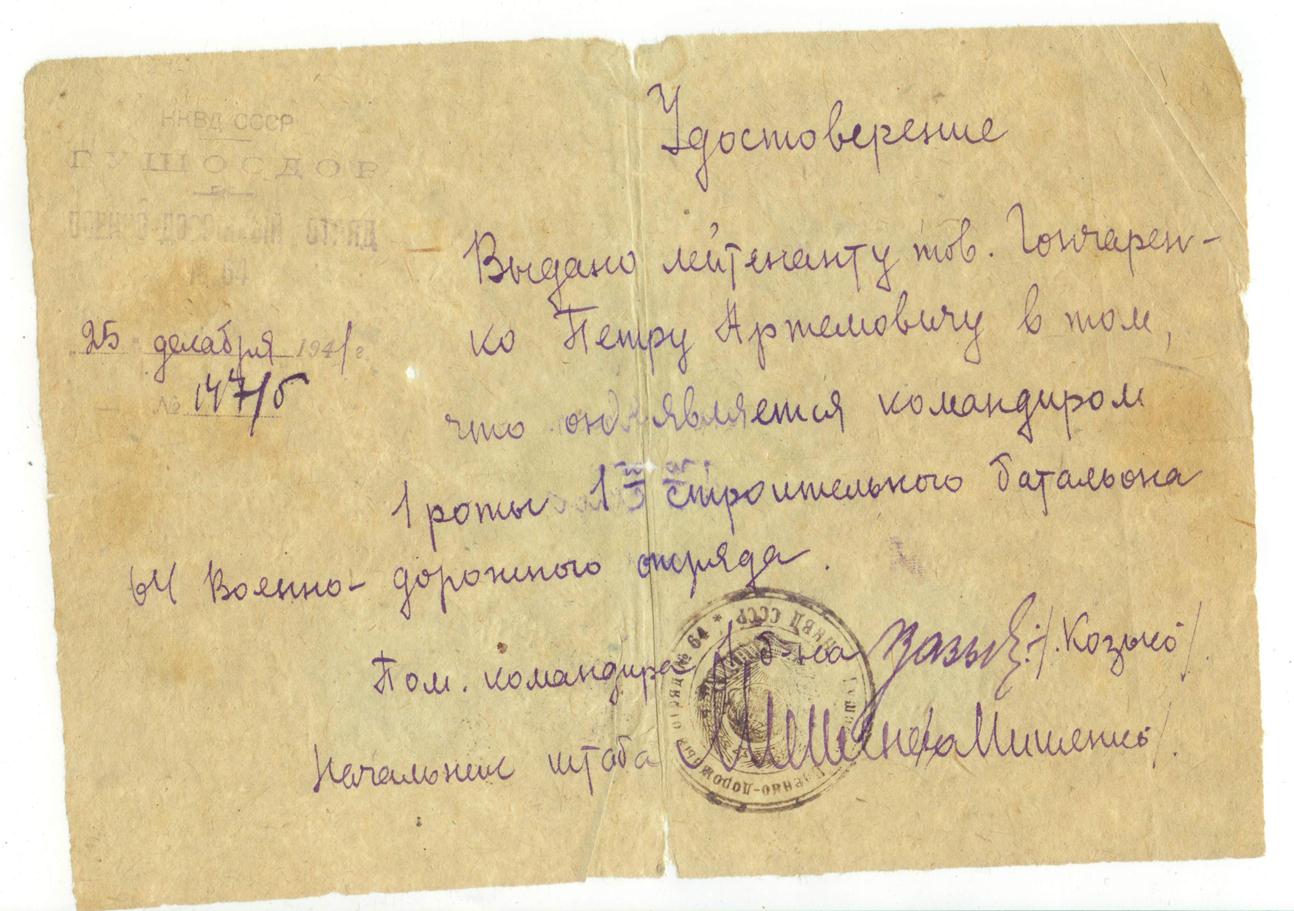 НКВД СССР
ГУШОСДОР
№ 64
"25" декабря 1941 г.
№ 147/б
Удостоверение
Выдано лейтенанту тов. Гончарен-
ко Петру Артемовичу в том,
что он является командиром
1 роты 1го строительного батальона
64 Военно-дорожного отряда.
Пом. командира 1 б-на /Козько/.
Начальник штаба /Мишенко/.
НКВД СССР * Военно-дорожный отряд № 64